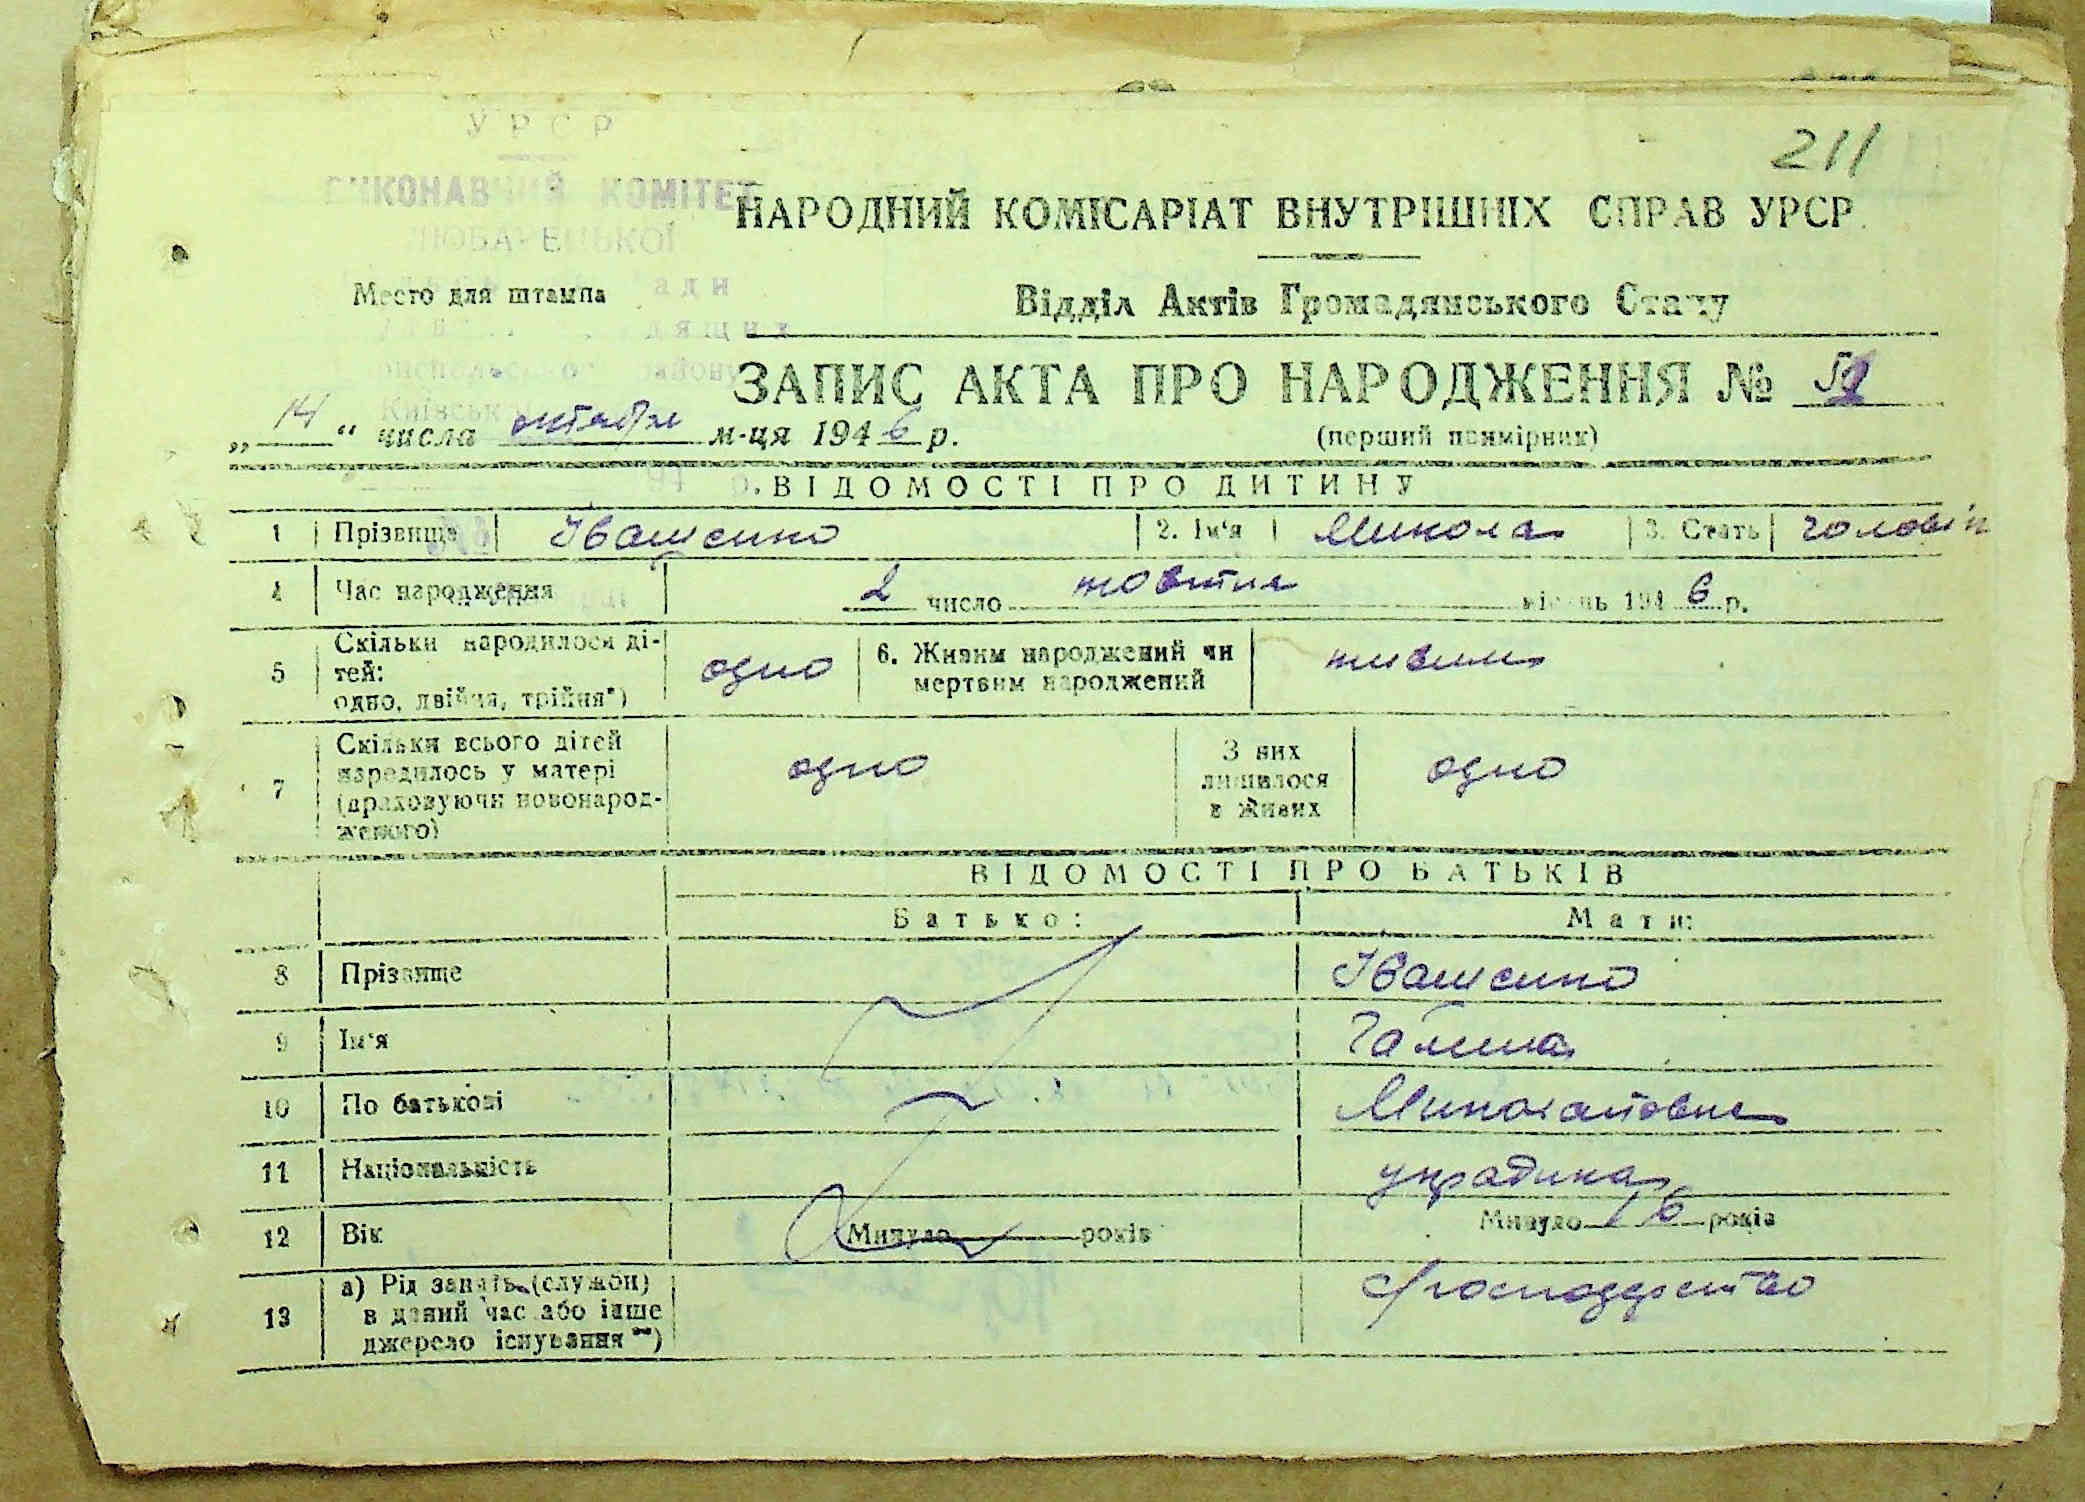 211
УРСР
ВИКОНАВЧИЙ КОМІТЕТ
ЛЮБАРЕЦЬКОЇ
НАРОДНИЙ КОМІСАРІАТ ВНУТРІШНІХ СПРАВ УРСР.
Место для штампа
Відділ Актів Громадянського Стану
ЗАПИС АКТА ПРО НАРОДЖЕННЯ №
„14“ числа октября м-ця 1946 р.
(перший примірник)
ВІДОМОСТІ ПРО ДИТИНУ
1 Прізвище Іващенко 2. Ім'я Микола 3. Стать чоловіч
4 Час народження 2 число жовтня місяць 1946 р.
5 Скільки народилося ді-
тей:
одно, двійня, трійня*) одно 6. Живим народжений чи
мертвим народжений живим
7 Скільки всього дітей
народилось у матері
(враховуючи новонарод-
женого) одно З них
лишилося
в живих одно
ВІДОМОСТІ ПРО БАТЬКІВ
Батько: Мати:
8 Прізвище Іващенко
9 Ім'я Галина
10 По батькові Миколаївна
11 Національність
12 Вік Минуло років Минуло 16 років
13 а) Рід занять (служби)
в даний час або інше
джерело існування **) господарство